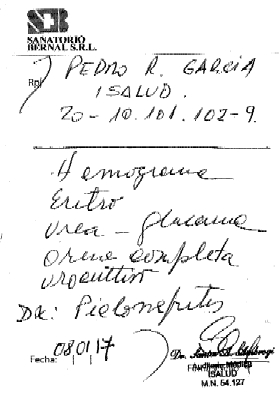 SB
SANATORIO
BERNAL S.R.L.
Rp/
PEDRO R. GARCIA
ISALUD.
20-10.101.102-9.
Hemograma
Eritro
Urea - glucemia
Orina completa
Urocultivo
Dx: Pielonefritis
Fecha: 08 01 17
Dr.
Auditoría Médica
ISALUD
M.N. 54.127